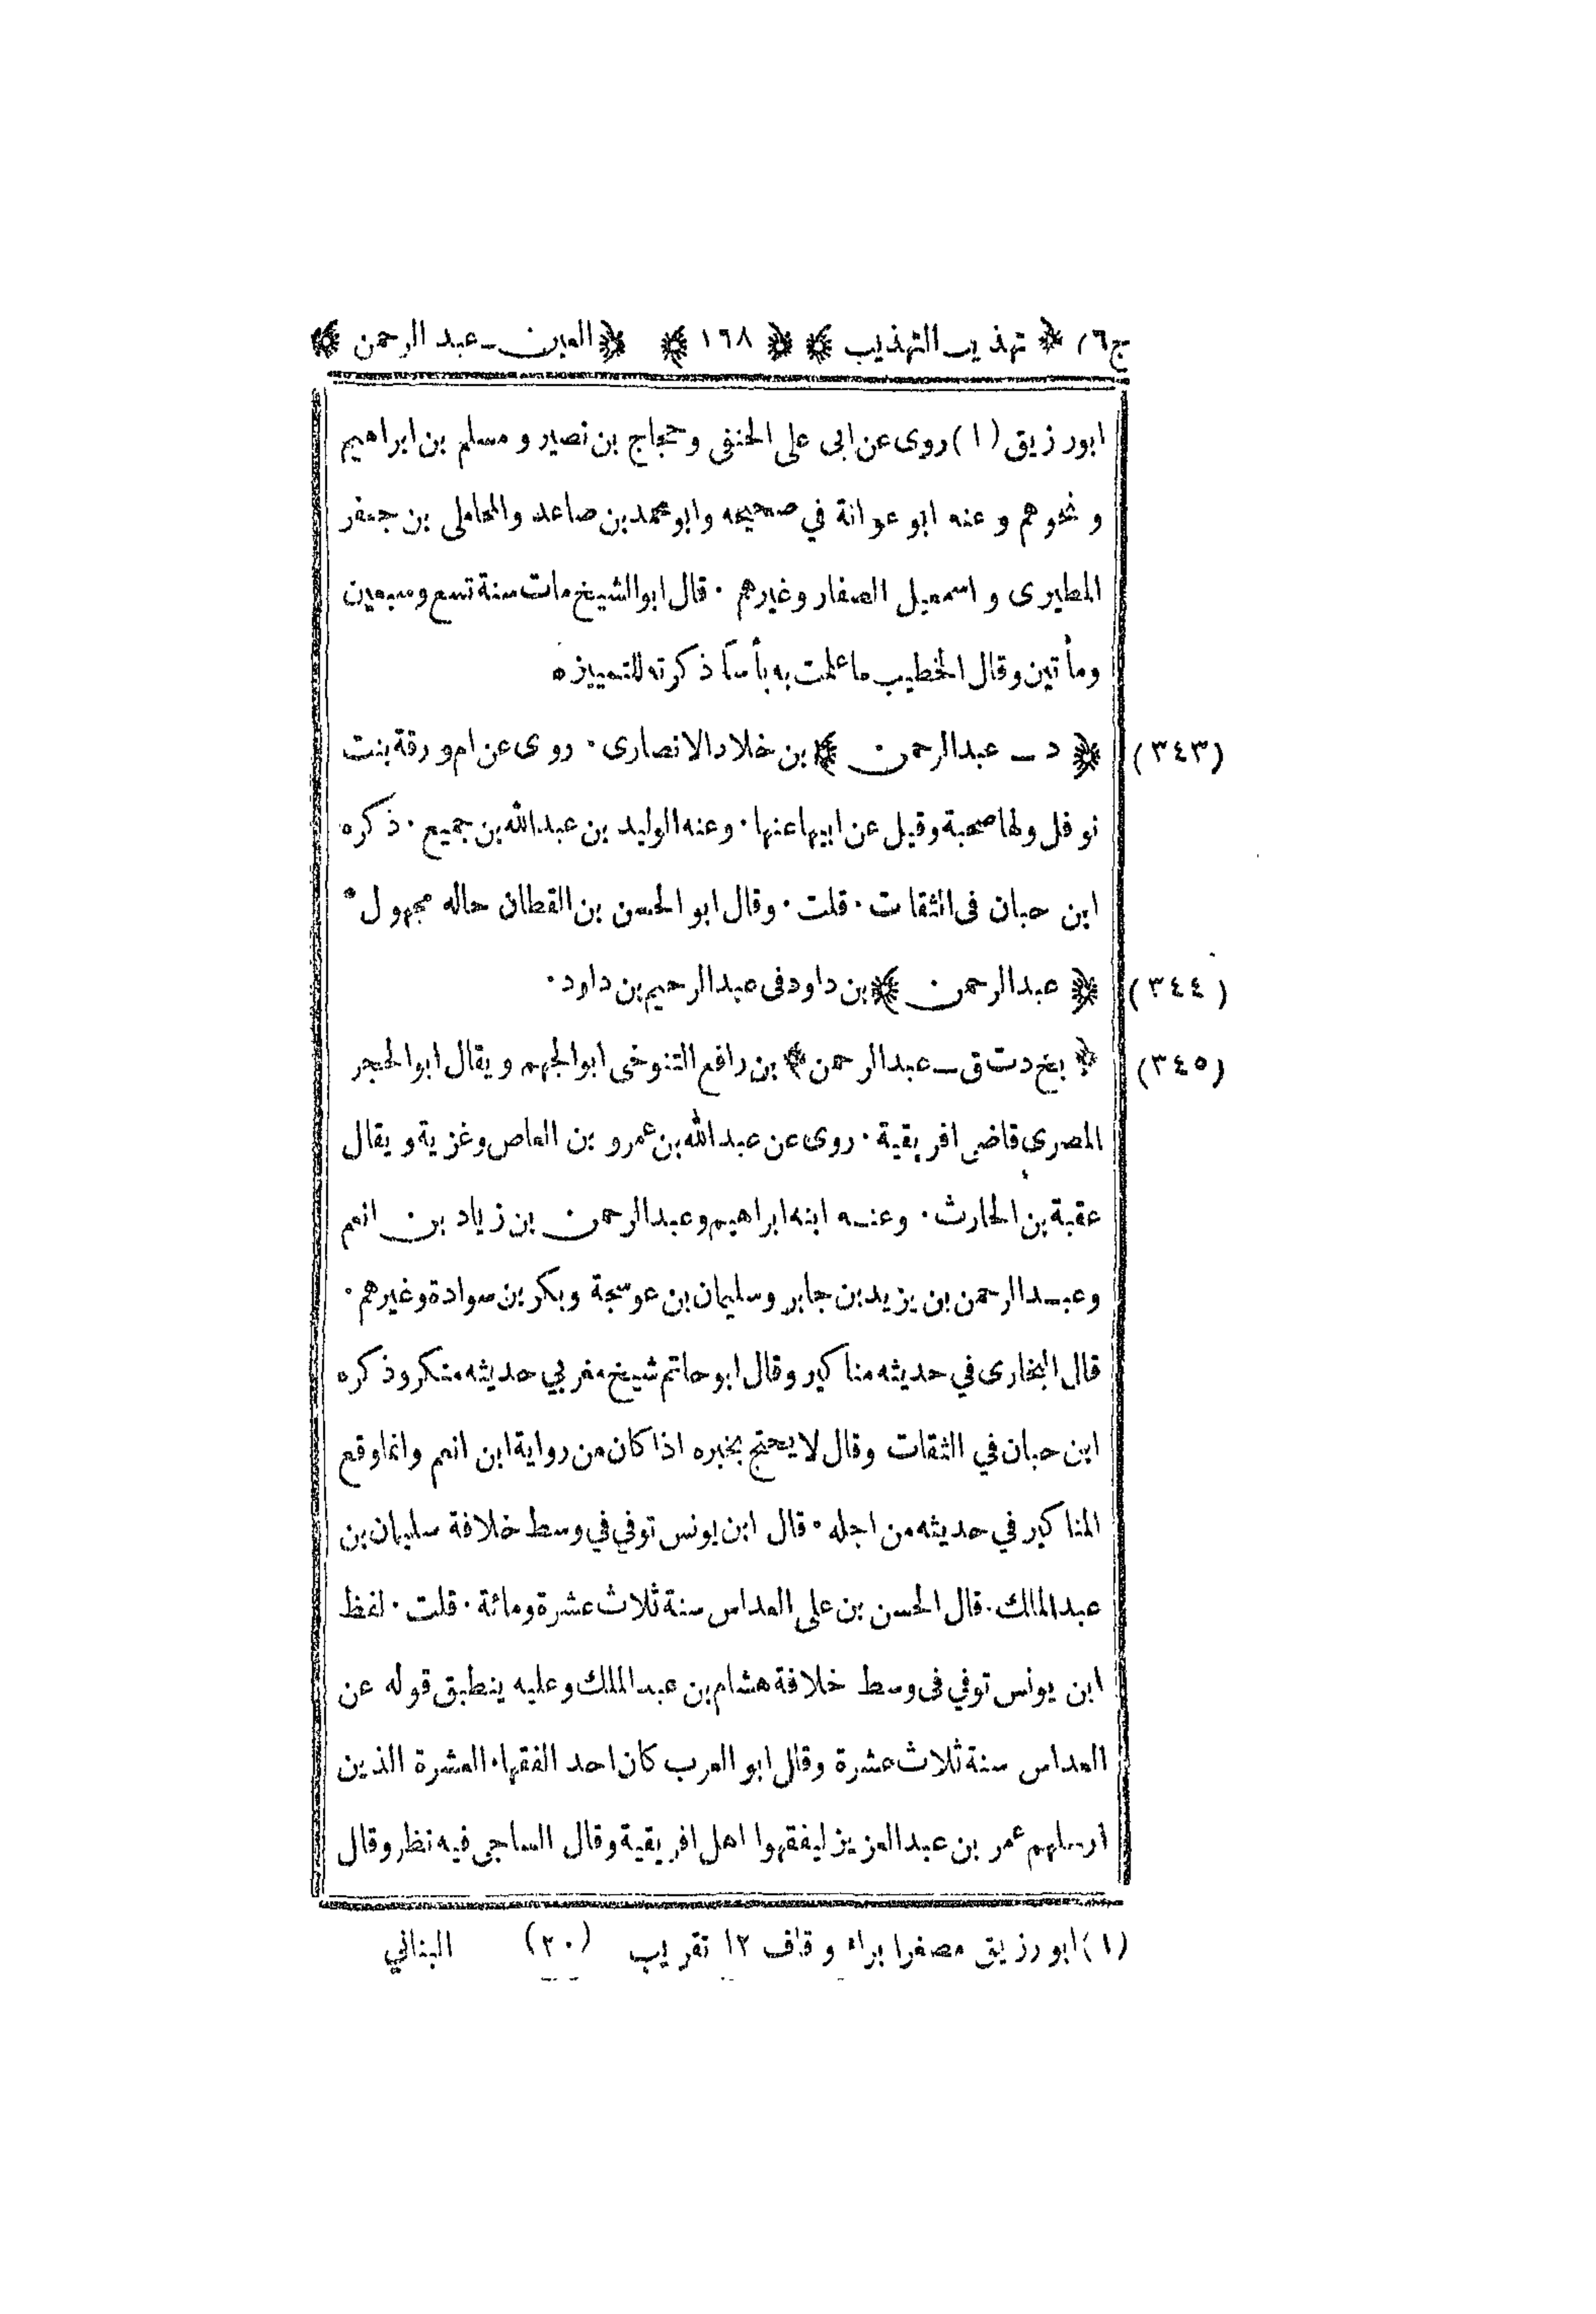 ج٦ ﴿ تهذيب التهذيب ﴾ ﴿ ١٦٨ ﴾ ﴿ العين ـ عبد الرحمن ﴾
ابورزيق (١) روى عن ابى على الحنفى وحجاج بن نصير و مسلم بن ابراهيم
و نحوهم و عنه ابو عوانة في صحيحه وابو محمد بن صاعد والمحاملى بن جعفر
المطيرى و اسمعيل الصفار وغيرهم ٠ قال ابو الشيخ مات سنة تسع وسبعين
ومأتين وقال الخطيب ما علمت به بأساً ذكرته للتمييز ه
(٣٤٣) ﴿ د ـ عبدالرحمن ﴾ بن خلاد الانصارى ٠ روى عن ام ورقة بنت
نوفل ولها صحبة وقيل عن ابيها عنها ٠ وعنه الوليد بن عبدالله بن جميع ٠ ذكره
ابن حبان فى الثقات ٠ قلت ٠ وقال ابو الحسن بن القطان حاله مجهول ٠
(٣٤٤) ﴿ عبدالرحمن ﴾ بن داود فى عبدالرحيم بن داود ٠
(٣٤٥) ﴿ بخ د ت ق ـ عبدالرحمن ﴾ بن رافع التنوخى ابو الجهم ويقال ابو الحجر
المصرى قاضى افريقية ٠ روى عن عبدالله بن عمرو بن العاص وغزية ويقال
عقبة بن الحارث ٠ وعنه ابنه ابراهيم وعبدالرحمن بن زياد بن انعم
وعبدالرحمن بن يزيد بن جابر وسليمان بن عوسجة وبكر بن سوادة وغيرهم ٠
قال البخارى في حديثه مناكير وقال ابو حاتم شيخ مغربي حديثه منكر وذكره
ابن حبان في الثقات وقال لا يحتج بخبره اذا كان من رواية ابن انعم وانما وقع
المناكير في حديثه من اجله ٠ قال ابن يونس توفي في وسط خلافة سليمان بن
عبدالملك ٠ قال الحسن بن على العداس سنة ثلاث عشرة ومائة ٠ قلت ٠ لفظ
ابن يونس توفي فى وسط خلافة هشام بن عبدالملك وعليه ينطبق قوله عن
العداس سنة ثلاث عشرة وقال ابو العرب كان احد الفقهاء العشرة الذين
ارسلهم عمر بن عبدالعزيز ليفقهوا اهل افريقية وقال الساجى فيه نظر وقال
(١) ابورزيق مصغرا براء وقاف ١٢ تقريب (٢٠) البناني